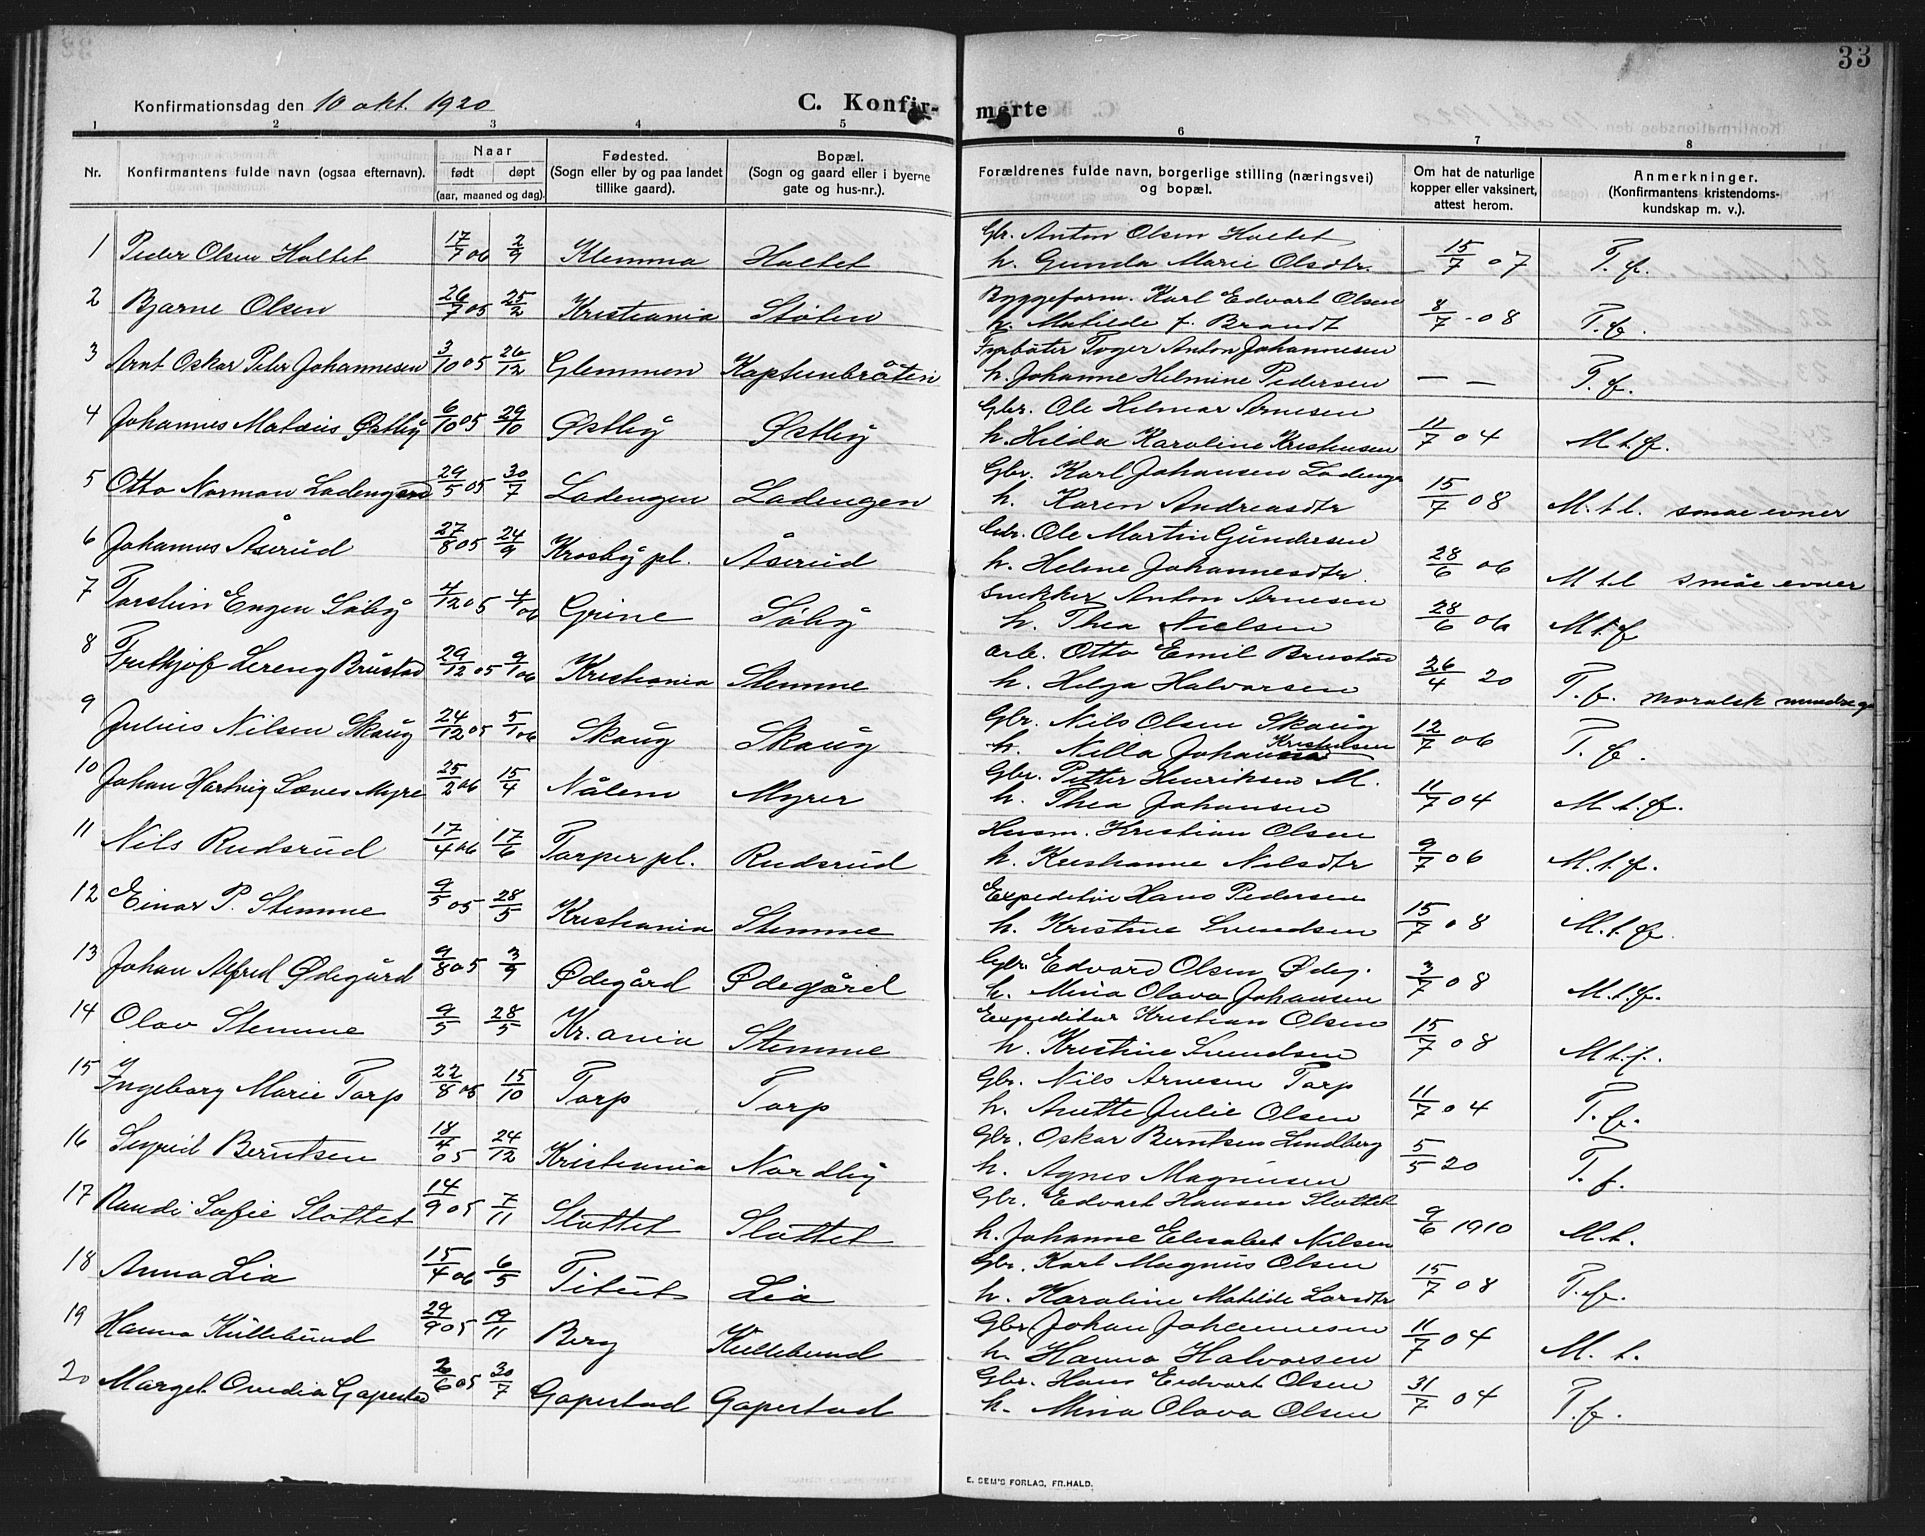 33
Konfirmationsdag den 10 okt. 1920
C. Konfir-
merte
1 2 3 4 5 6 7 8
Nr.
Konfirmantens fulde navn (ogsaa efternavn).
Naar
født døpt
(aar, maaned og dag).
Fødested.
(Sogn eller by og paa landet
tillike gaard).
Bopæl.
(Sogn og gaard eller i byerne
gate og hus-nr.).
Forældrenes fulde navn, borgerlige stilling (næringsvei)
og bopæl.
Om hat de naturlige
kopper eller vaksinert,
attest herom.
Anmerkninger.
(Konfirmantens kristendoms-
kundskap m. v.).
Gbr. Anton Olsen Holtet
1 Peder Olsen Holtet 17/7 06 2/9 Klemma Holtet h. Gunda Marie Olsdtr. 15/7 07 T. f.
Byggeform. Karl Edvart Olsen
2 Bjarne Olsen 26/7 05 25/2 Kristiania Støten h. Matilde f. Brandt 8/7 - 08 T. f.
Fyrbøter Toger Anton Johannesen
3 Arnt Oskar Peter Johannesen 3/10 05 26/12 Glemmen Kapteinbråten h. Johanne Helmine Pedersen — — T. f.
Gbr. Ole Helmar Arnesen
4 Johannes Matæus Østby 6/10 05 29/10 Østby Østby h. Hilda Karoline Kristensen 11/7 04 M.t.f.
Gbr. Karl Johansen Ladeng.
5 Otto Norman Ladengen 29/5 05 30/7 Ladengen Ladengen h. Karen Andreasdtr 15/7 08 M.t.l. smae evner
Gbr. Ole Martin Gundersen
6 Johannes Åserud 27/8 05 24/9 Krosby pl. Åserud h. Helene Johannesdtr. 28/6 06 M t l smae evner
Snekker Anton Arnesen
7 Torstein Engen Løby 4/12 05 4/1 06 Grine Løby h. Thea Nielsen 28/6 06 M t f
arb. Otto Emil Brustad
8 Fritkjof Lereng Brustad 29/12 05 9/1 06 Kristiania Stemme h. Helga Halvorsen 26/4 20 T. f. moralsk
Gbr. Nils Olsen Skaug
9 Julius Nilsen Skaug 24/12 05 5/1 06 Skaug Skaug h. Nilla Kristensen 12/7 06 T. f.
Gbr. Petter Henriksen M.
10 Johan Hartvig Myre 25/2 06 15/4 Nålem Myrer h. Thea Johansen 11/7 04 M. t. f.
Husm. Kristian Olsen
11 Nils Rudsrud 17/4 06 17/6 Torper pl. Rudsrud h. Kristianne Nilsdtr 9/7 06 M.t.f.
Expeditør Hans Pedersen
12 Einar P. Stemme 9/5 05 28/5 Kristiania Stemme h. Kristine Svendsen 15/7 08 M.t.f.
Gbr. Edvard Olsen Ødeg.
13 Johan Alfred Ødegård 9/8 05 3/9 Ødegård Ødegård h. Mina Olava Johansen 3/7 08 M.t.f.
Expeditør Kristian Olsen
14 Olav Stemme 9/5 28/5 Kr.ania Stemme h. Kristine Svendsen 15/7 08 M t. f.
Gbr. Nils Arnesen Torp
15 Ingeborg Marie Torp 22/8 05 15/10 Torp Torp h. Anette Julie Olsen 11/7 04 T. f.
Gbr. Oskar Berntsen Lindberg
16 Sigrid Berntsen 18/4 05 24/12 Kristiania Nordby h. Agnes Magnusen 5/5 20 T. f.
Gbr. Edvart Hansen Slottet
17 Randi Sofie Slottet 14/9 05 7/11 Slottet Slottet h. Johanne Elisabet Nilsen 9/6 1910 M.t.
Gbr. Karl Magnus Olsen
18 Anna Lia 15/4 06 6/5 Titut Lia h. Karoline Matilde Larsdtr 15/7 08 T. f.
Gbr Johan Johannesen
19 Hanna Kullebund 29/9 05 19/11 Berg Kullebund h. Hanna Halvorsen 11/7 04 M. t.
Gbr. Hans Edvart Olsen
20 Margit Ovedia Gapestad 2/6 05 30/7 Gapestad Gapestad h. Mina Olava Olsen 31/7 04 T. f.
E. SEM'S FORLAG, FR.HALD.